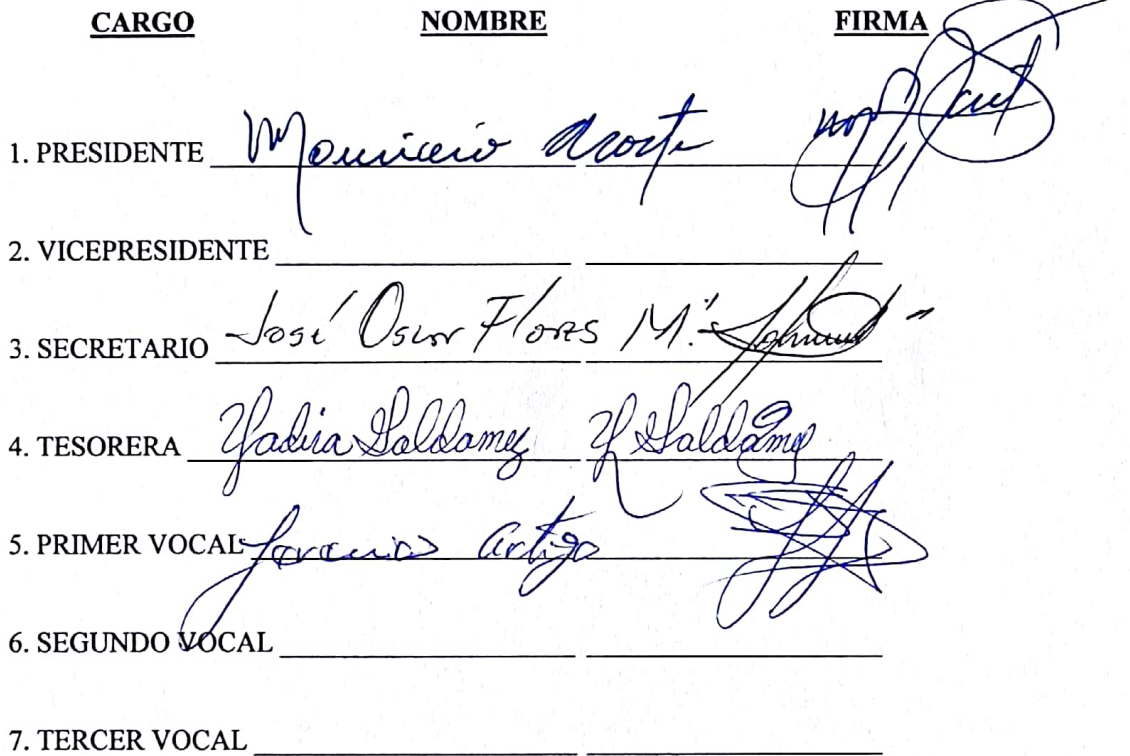 CARGO NOMBRE FIRMA
1. PRESIDENTE Mauricio
2. VICEPRESIDENTE
3. SECRETARIO José Oscar Flores M.
4. TESORERA Yadira Saldamez Y Saldamez
5. PRIMER VOCAL Artiga
6. SEGUNDO VOCAL
7. TERCER VOCAL